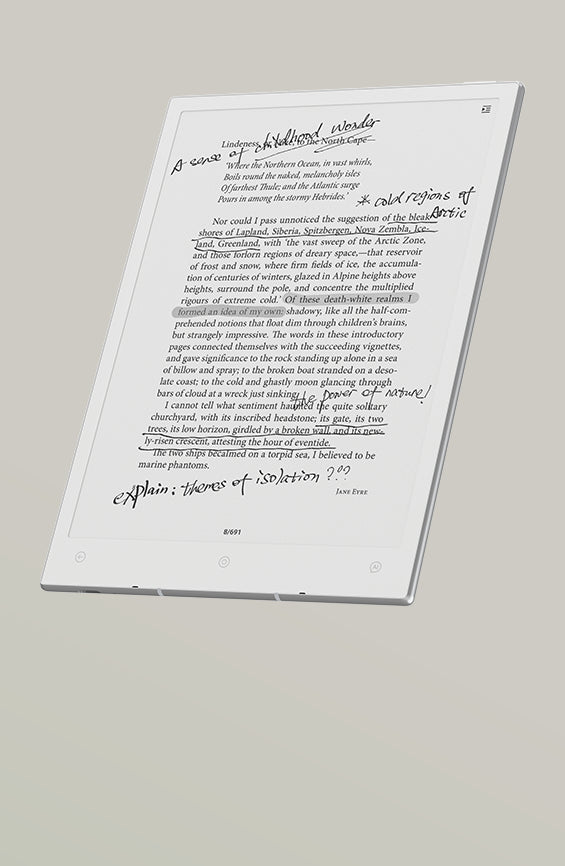 A sense of childhood wonder
Lindeness, to the North Cape
'Where the Northern Ocean, in vast whirls,
Boils round the naked, melancholy isles
Of farthest Thule; and the Atlantic surge
Pours in among the stormy Hebrides.'
* cold regions of
Arctic
Nor could I pass unnoticed the suggestion of the bleak
shores of Lapland, Siberia, Spitzbergen, Nova Zembla, Ice-
land, Greenland, with 'the vast sweep of the Arctic Zone,
and those forlorn regions of dreary space,—that reservoir
of frost and snow, where firm fields of ice, the accumula-
tion of centuries of winters, glazed in Alpine heights above
heights, surround the pole, and concentre the multiplied
rigours of extreme cold.' Of these death-white realms I
formed an idea of my own: shadowy, like all the half-com-
prehended notions that float dim through children's brains,
but strangely impressive. The words in these introductory
pages connected themselves with the succeeding vignettes,
and gave significance to the rock standing up alone in a sea
of billow and spray; to the broken boat stranded on a deso-
late coast; to the cold and ghastly moon glancing through
bars of cloud at a wreck just sinking.
the power of nature!
I cannot tell what sentiment haunted the quite solitary
churchyard, with its inscribed headstone; its gate, its two
trees, its low horizon, girdled by a broken wall, and its new-
ly-risen crescent, attesting the hour of eventide.
The two ships becalmed on a torpid sea, I believed to be
marine phantoms.
explain: themes of isolation ???
Jane Eyre
8/691
AI